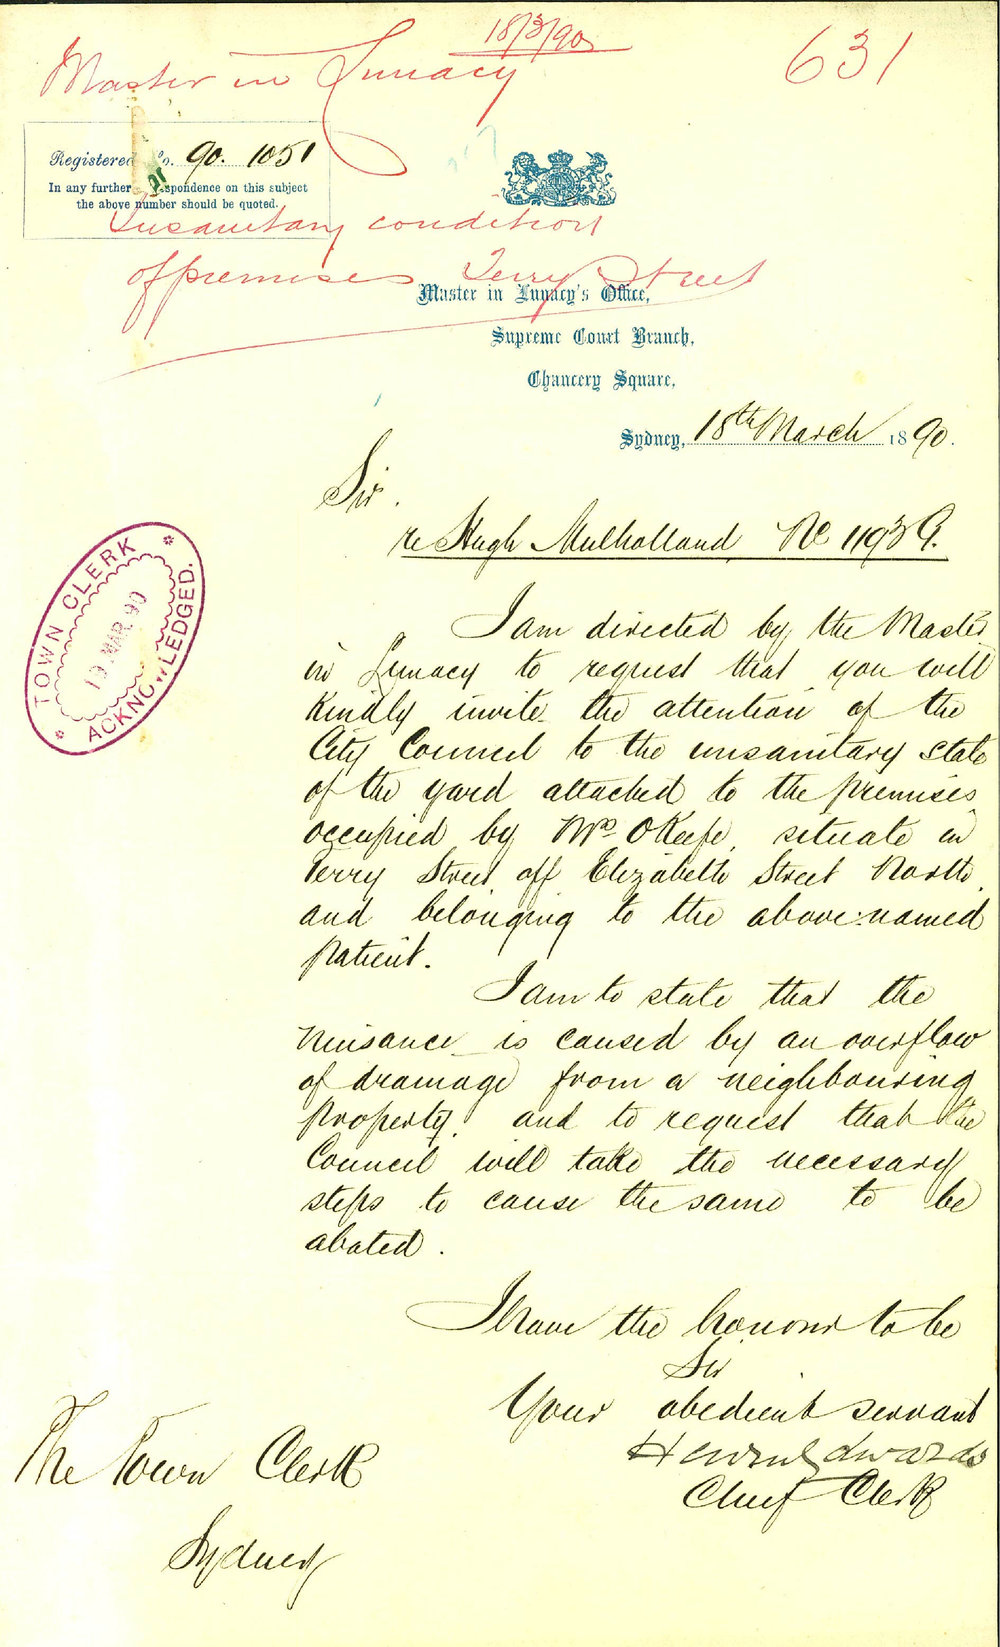 18/3/90
631
Master in Lunacy
Registered No. 90. 1051
In any further correspondence on this subject
the above number should be quoted.
Insanitary condition
of premises Terry Street
Master in Lunacy's Office,
Supreme Court Branch,
Chancery Square,
Sydney, 18th March 1890.
Sir.
re Hugh Mulholland, No 1193 G.
TOWN CLERK
19 MAR. 90
ACKNOWLEDGED.
I am directed by the Master
in Lunacy to request that you will
kindly invite the attention of the
City Council to the unsanitary state
of the yard attached to the premises
occupied by Mrs OKeefe, situate in
Terry Street off Elizabeth Street North,
and belonging to the above-named
patient.
I am to state that the
nuisance is caused by an overflow
of drainage from a neighbouring
property, and to request that the
Council will take the necessary
steps to cause the same to be
abated.
I have the honour to be
Sir
Your obedient servant
Henry Edwards
Chief Clerk
The Town Clerk
Sydney